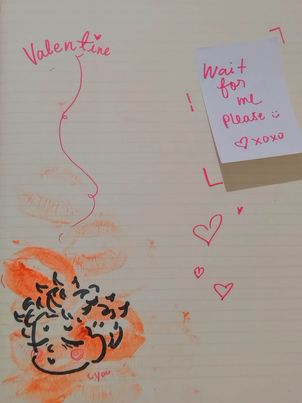 Valentine
Wait
for
me
Please :)
♡ xoxo
!
you